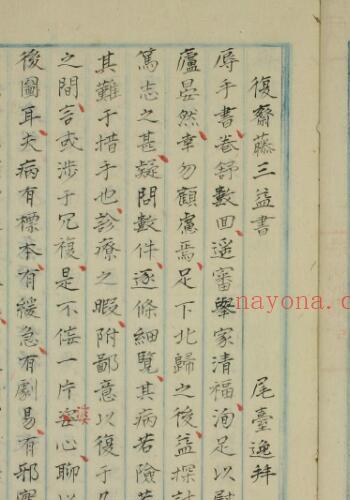 復齋藤三益書
尾臺逸拜
辱手書卷舒數回遥審擧家清福洵足以慰
廬晏然幸勿顧慮焉足下北歸之後益探討
篤志之甚疑問數件逐條細覽其病若險若
其難于措手也診療之暇附鄙意以復于
之間言或涉于冗複是不佞一片婆心聊以
後圖耳夫病有標本有緩急有劇易有邪實
nayona.cn